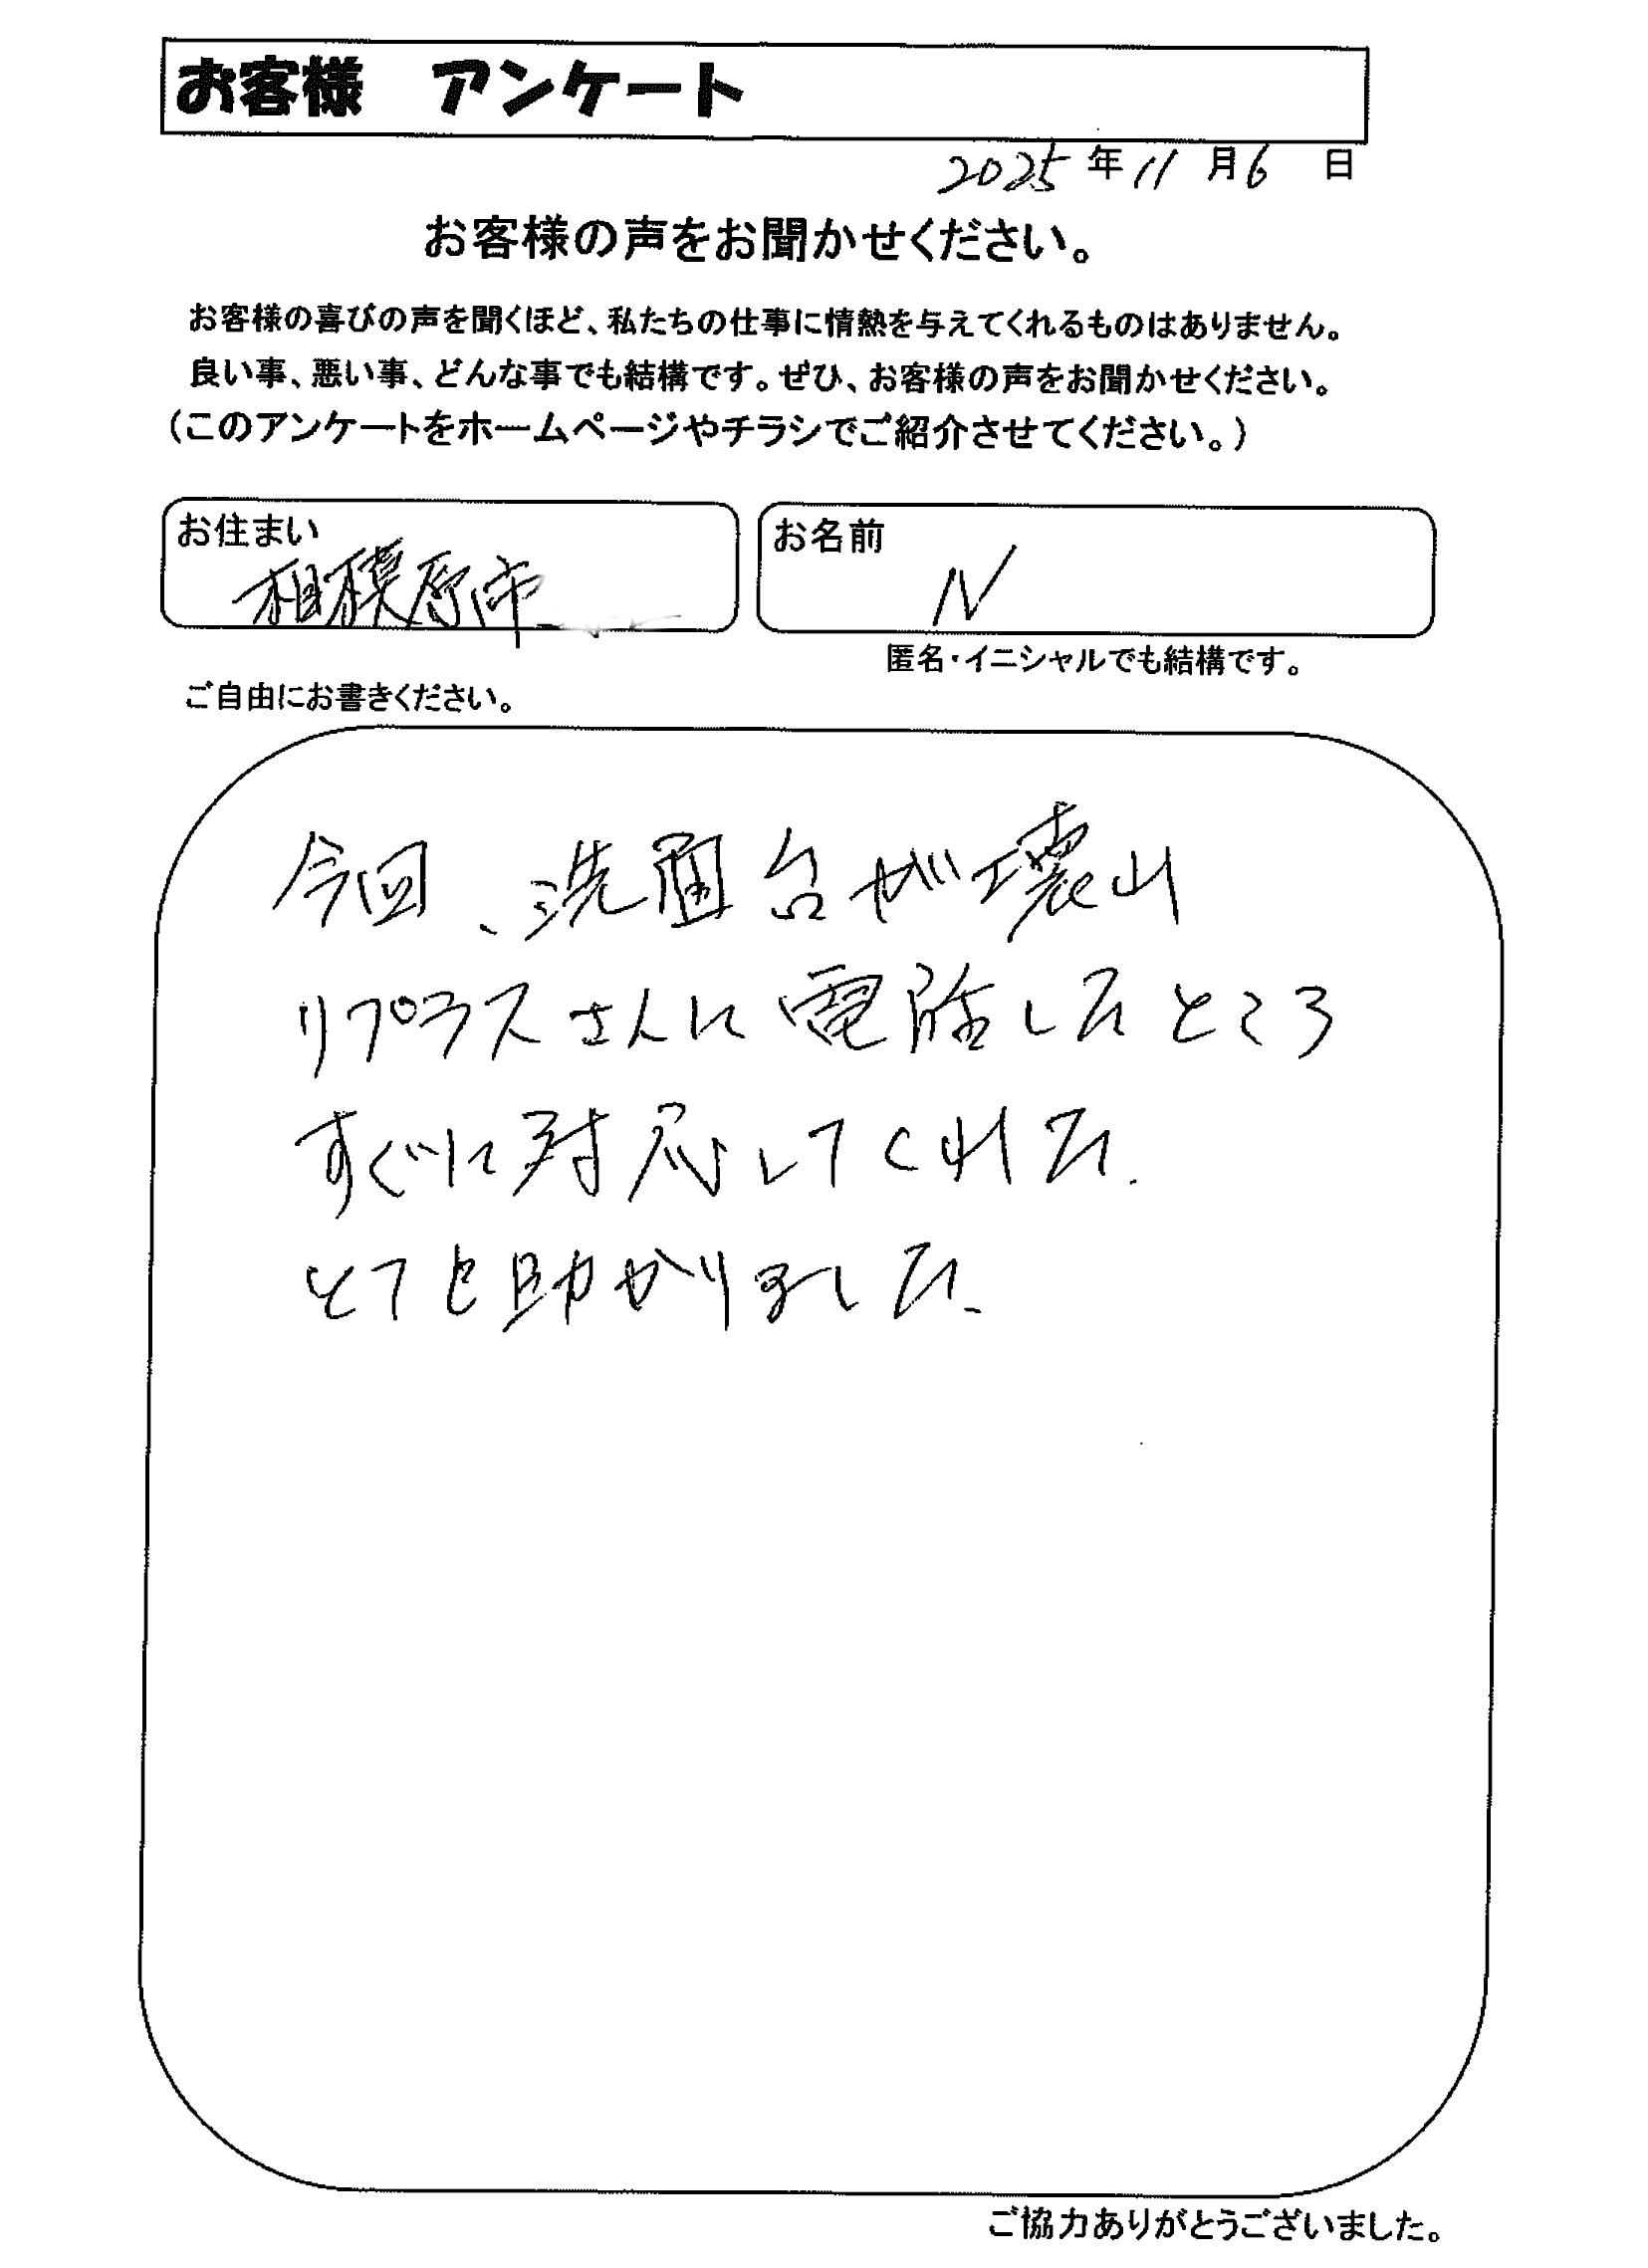 お客様 アンケート
2025年11月6日
お客様の声をお聞かせください。
お客様の喜びの声を聞くほど、私たちの仕事に情熱を与えてくれるものはありません。
良い事、悪い事、どんな事でも結構です。ぜひ、お客様の声をお聞かせください。
(このアンケートをホームページやチラシでご紹介させてください。)
お住まい
相模原市
お名前
N
匿名・イニシャルでも結構です。
ご自由にお書きください。
今回、洗面台が壊れ
リプラスさんに電話したところ
すぐに対応してくれた.
とても助かりました.
ご協力ありがとうございました。